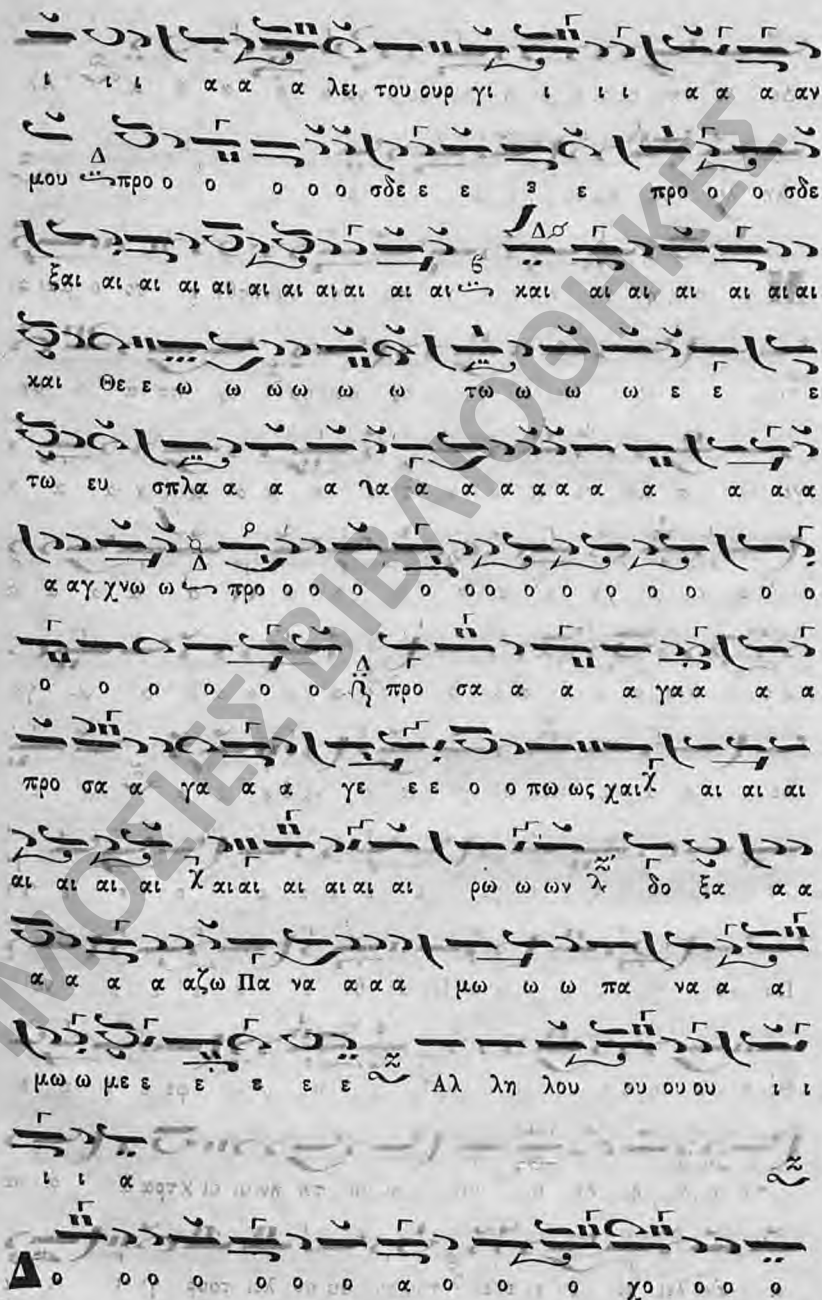 ι ι ι α α α λει του ουρ γι ι ι ι α α α αν
μου προ ο ο ο ο ο σδε ε ε ε ε προ ο ο σδε
ξαι αι αι αι αι αι αι αι αι αι αι και αι αι αι αι αι αι
και Θε ε ω ω ω ω ω ω τω ω ω ω ε ε ε
τω ευ σπλα α α α λα α α α α α α α α α α
α αγ χνω ω προ ο ο ο ο ο ο ο ο ο ο ο ο ο
ο ο ο ο ο ο προ σα α α α γα α α α
προ σα α γα α α γε ε ε ο ο πω ως χαι αι αι αι
αι αι αι αι χ αι αι αι αι αι αι ρω ω ων δο ξα α α
α α α α αζω Πα να α α α μω ω ω πα να α α
μω ω με ε ε ε ε ε Αλ λη λου ου ου ου ι ι
ι ι α
Δο ο ο ο ο ο ο α ο ο ο χο ο ο ο
ΜΟΣΙΕΣ ΒΙΒΛΙΟΘΗΚΕΣ